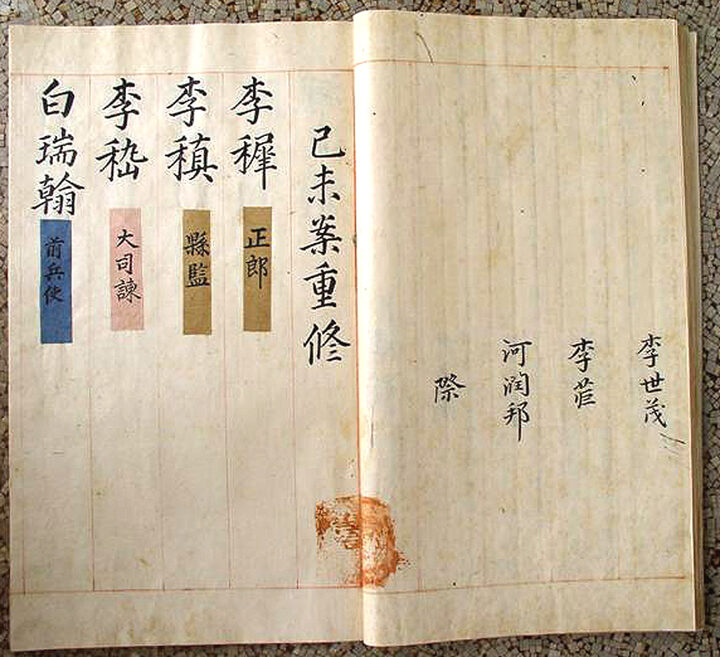 李世茂
李
河润邦
際
己未案重修
李穉 正郎
李稹 縣監
李 大司諫
白瑞翰 前兵使